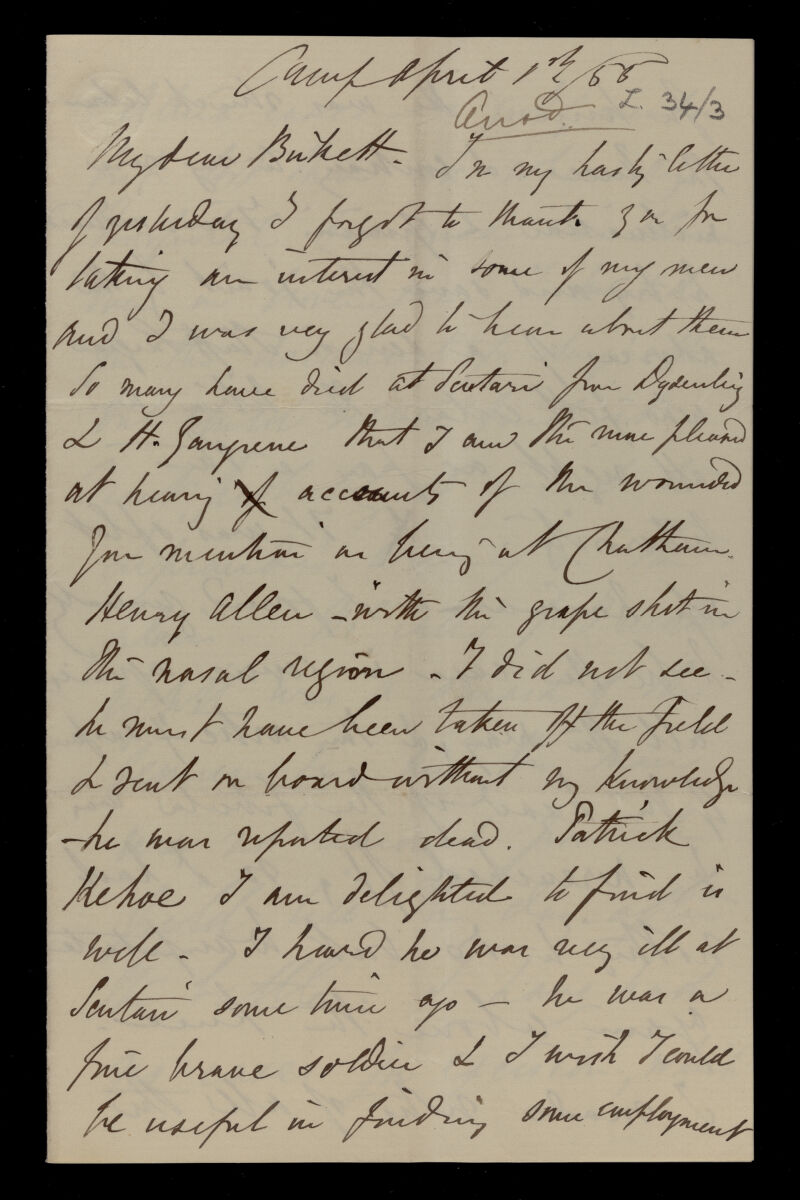 Camp April 1st/55
Ansd. L. 34/3
My dear Birkett - In my hasty letter
of yesterday I forgot to thank you for
taking an interest in some of my men
and I was very glad to hear about them
So many have died at Scutari from Dysentery
& H. Gangrene that I am the more pleased
at hearing of accounts of the wounded
you mention as being at Chatham.
Henry Allen - with the grape shot in
the nasal region - I did not see -
he must have been taken off the field
& sent on board without my knowledge
- he was reported dead. Patrick
Kehoe I am delighted to find is
well - I heard he was very ill at
Scutari some time ago - he was a
fine brave soldier & I wish I could
be useful in finding some employment